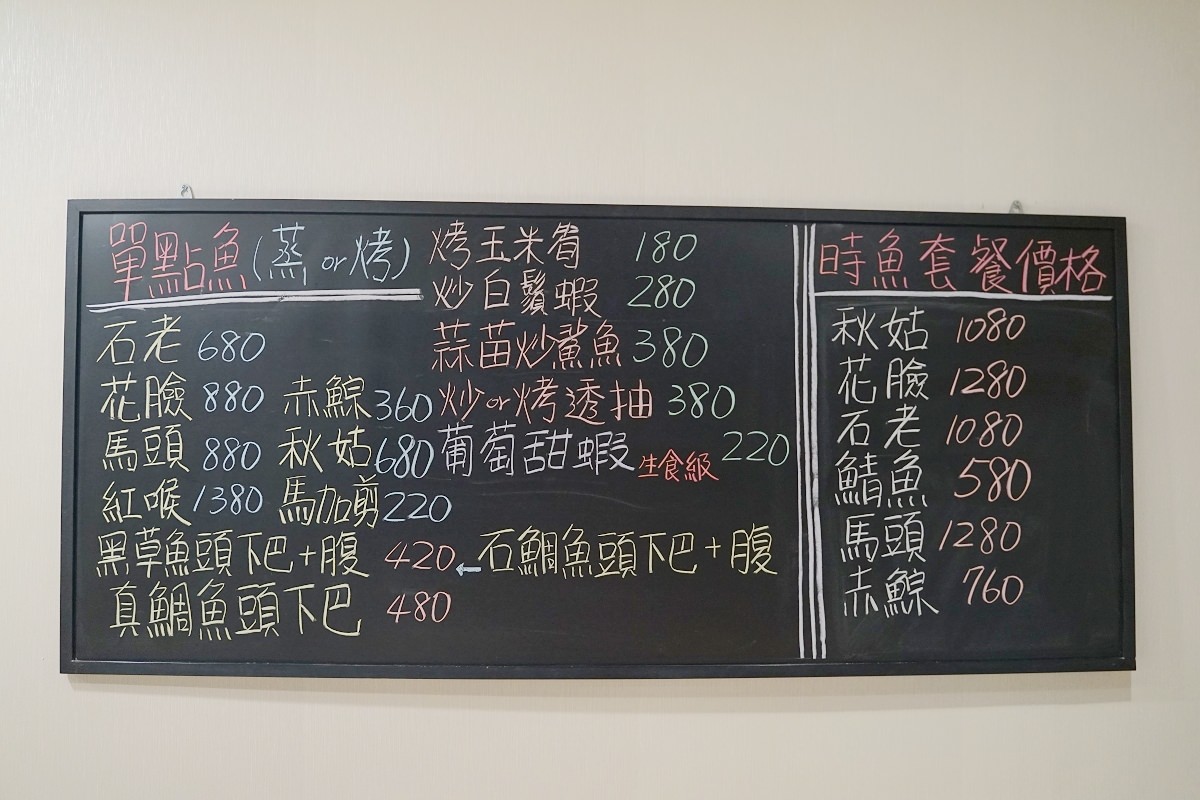 單點魚(蒸or烤)
石老 680
花臉 880 赤鯮 360
馬頭 880 秋姑 680
紅喉 1380 馬加剪 220
黑草魚頭下巴+腹 420 ← 石鯛魚頭下巴+腹
真鯛魚頭下巴 480
烤玉米筍 180
炒白鬚蝦 280
蒜苗炒鯊魚 380
炒or烤透抽 380
葡萄甜蝦 生食級 220
時魚套餐價格
秋姑 1080
花臉 1280
石老 1080
鯖魚 580
馬頭 1280
赤鯮 760